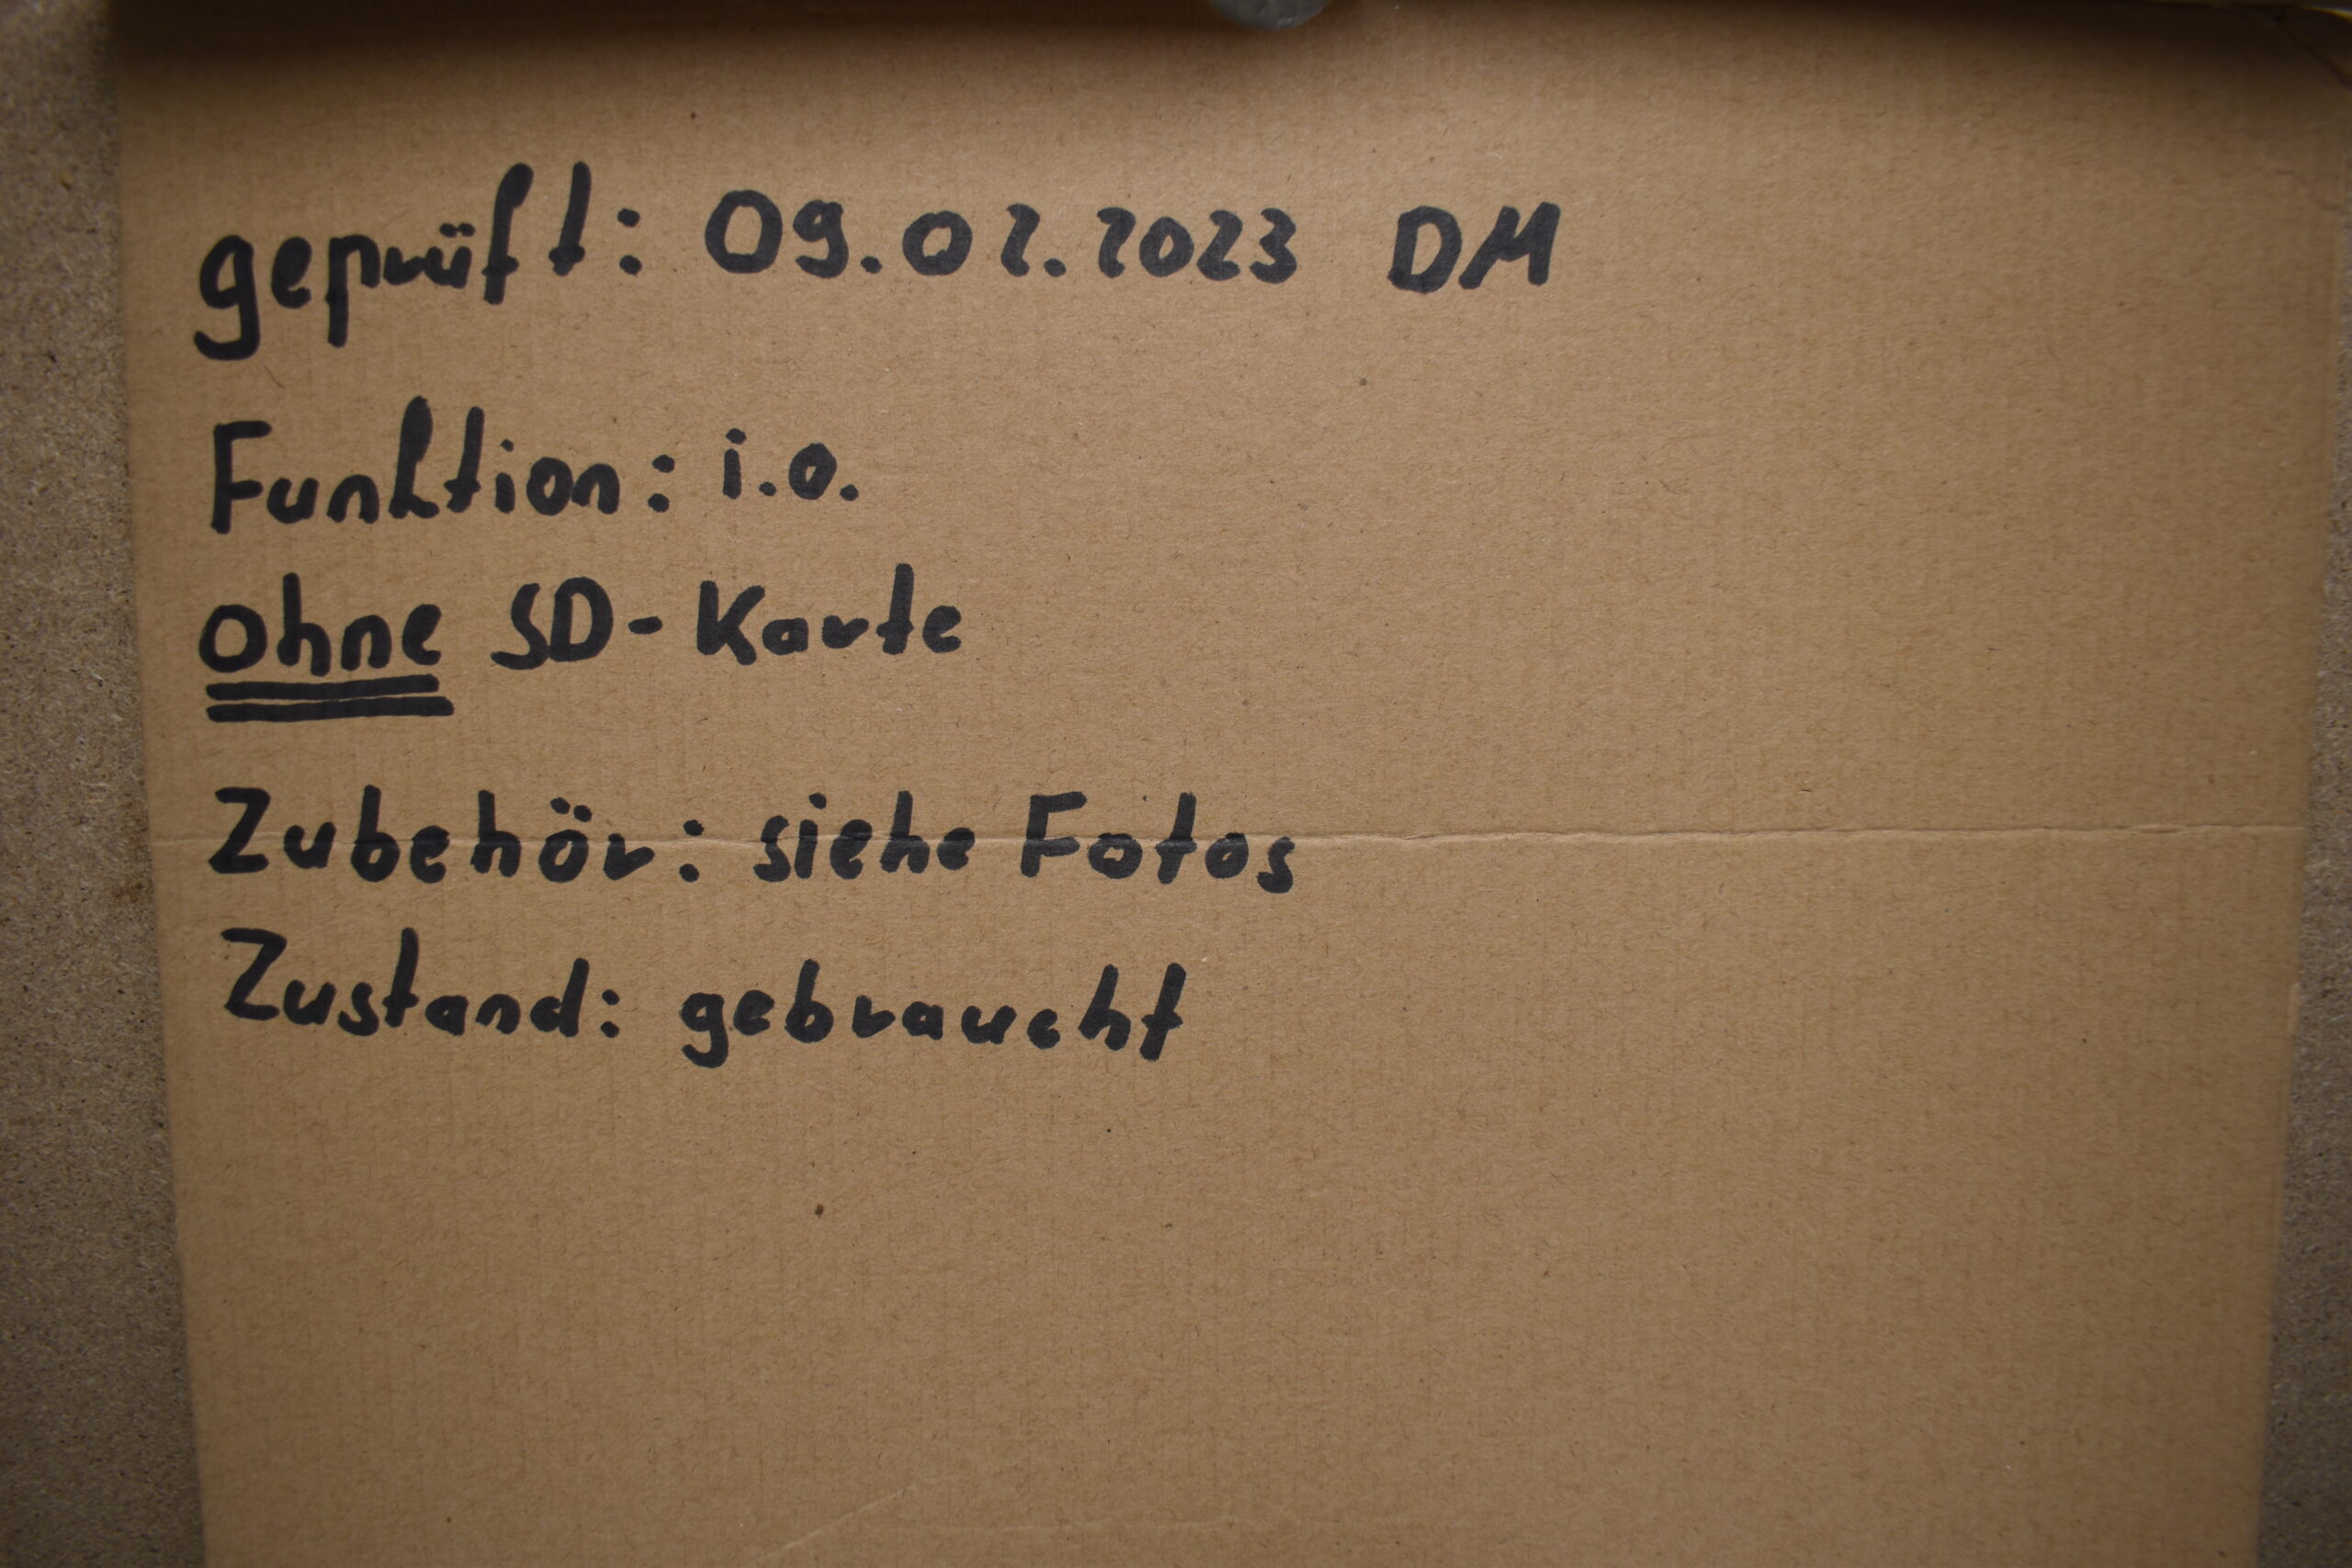 geprüft: 09.02.2023 DM
Funktion: i.o.
ohne SD-Karte
Zubehör: siehe Fotos
Zustand: gebraucht